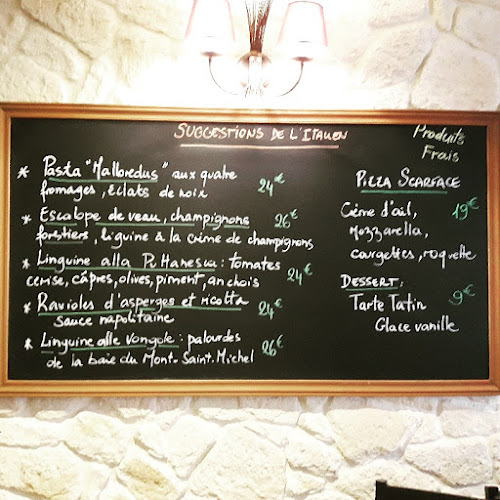 SUGGESTIONS DE L'ITALIEN
Produits
Frais
* Pasta "Malloredus" aux quatre
fromages, éclats de noix 24€
* Escalope de veau, champignons 26€
forestiers, liguine à la crème de champignons
* Linguine alla Puttanesca : tomates
cerise, câpres, olives, piment, anchois 24€
* Ravioles d'asperges et ricotta 24€
Sauce napolitaine
* Linguine alle Vongole : palourdes
de la baie du Mont-Saint-Michel 26€
PIZZA SCARFACE
Crème d'ail, 19€
Mozzarella,
courgettes, roquette
DESSERT :
Tarte Tatin 9€
Glace vanille